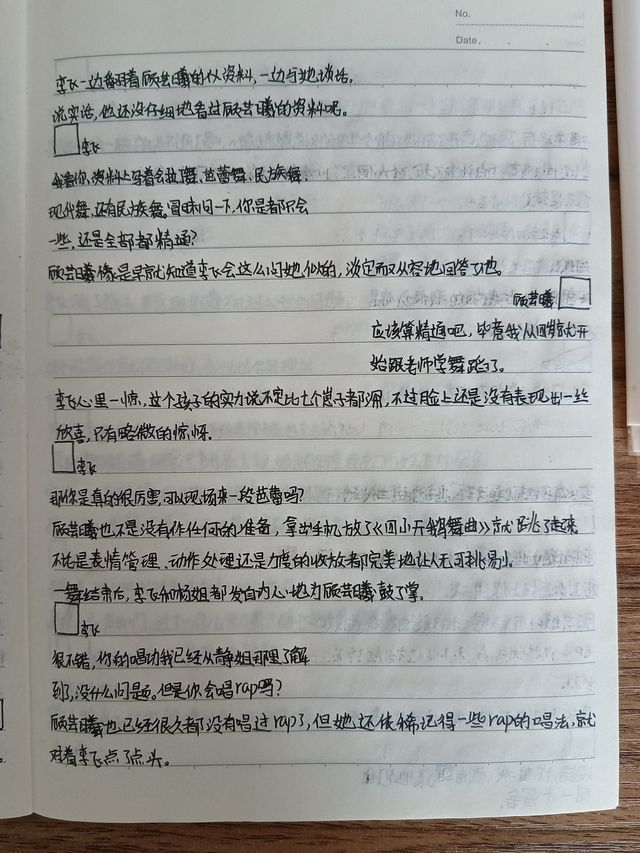 No.
Date
李飞一边翻着顾芸曦的个人资料，一边与她谈话。
说实话，他还没仔细地看过顾芸曦的资料呢。
李飞
我看你资料上写着会拉丁舞、芭蕾舞、民族舞、
现代舞，还有民族舞。冒昧问一下，你是都只会
一些，还是全部都精通？
顾芸曦像是早就知道李飞会这么问她似的，淡定而又从容地回答了他。
顾芸曦
应该算精通吧，毕竟我从四岁就开
始跟老师学舞蹈了。
李飞心里一惊，这个孩子的实力说不定比七个崽子都深，不过脸上还是没有表现出一些
欣喜，只有略微的惊讶。
李飞
那你是真的很厉害，可以现场来一段芭蕾吗？
顾芸曦也不是没有作任何的准备，拿出手机放了《四小天鹅舞曲》就跳了起来。
不论是表情管理、动作处理还是力度的收放都完美地让人无可挑剔。
一舞结束后，李飞和杨姐都发自内心地为顾芸曦鼓了掌。
李飞
很不错，你的唱功我已经从静姐那里了解
到了，没什么问题。但是你会唱rap吗？
顾芸曦也已经很久都没有唱过rap了，但她还依稀记得一些rap的唱法，就
对着李飞点了点头。